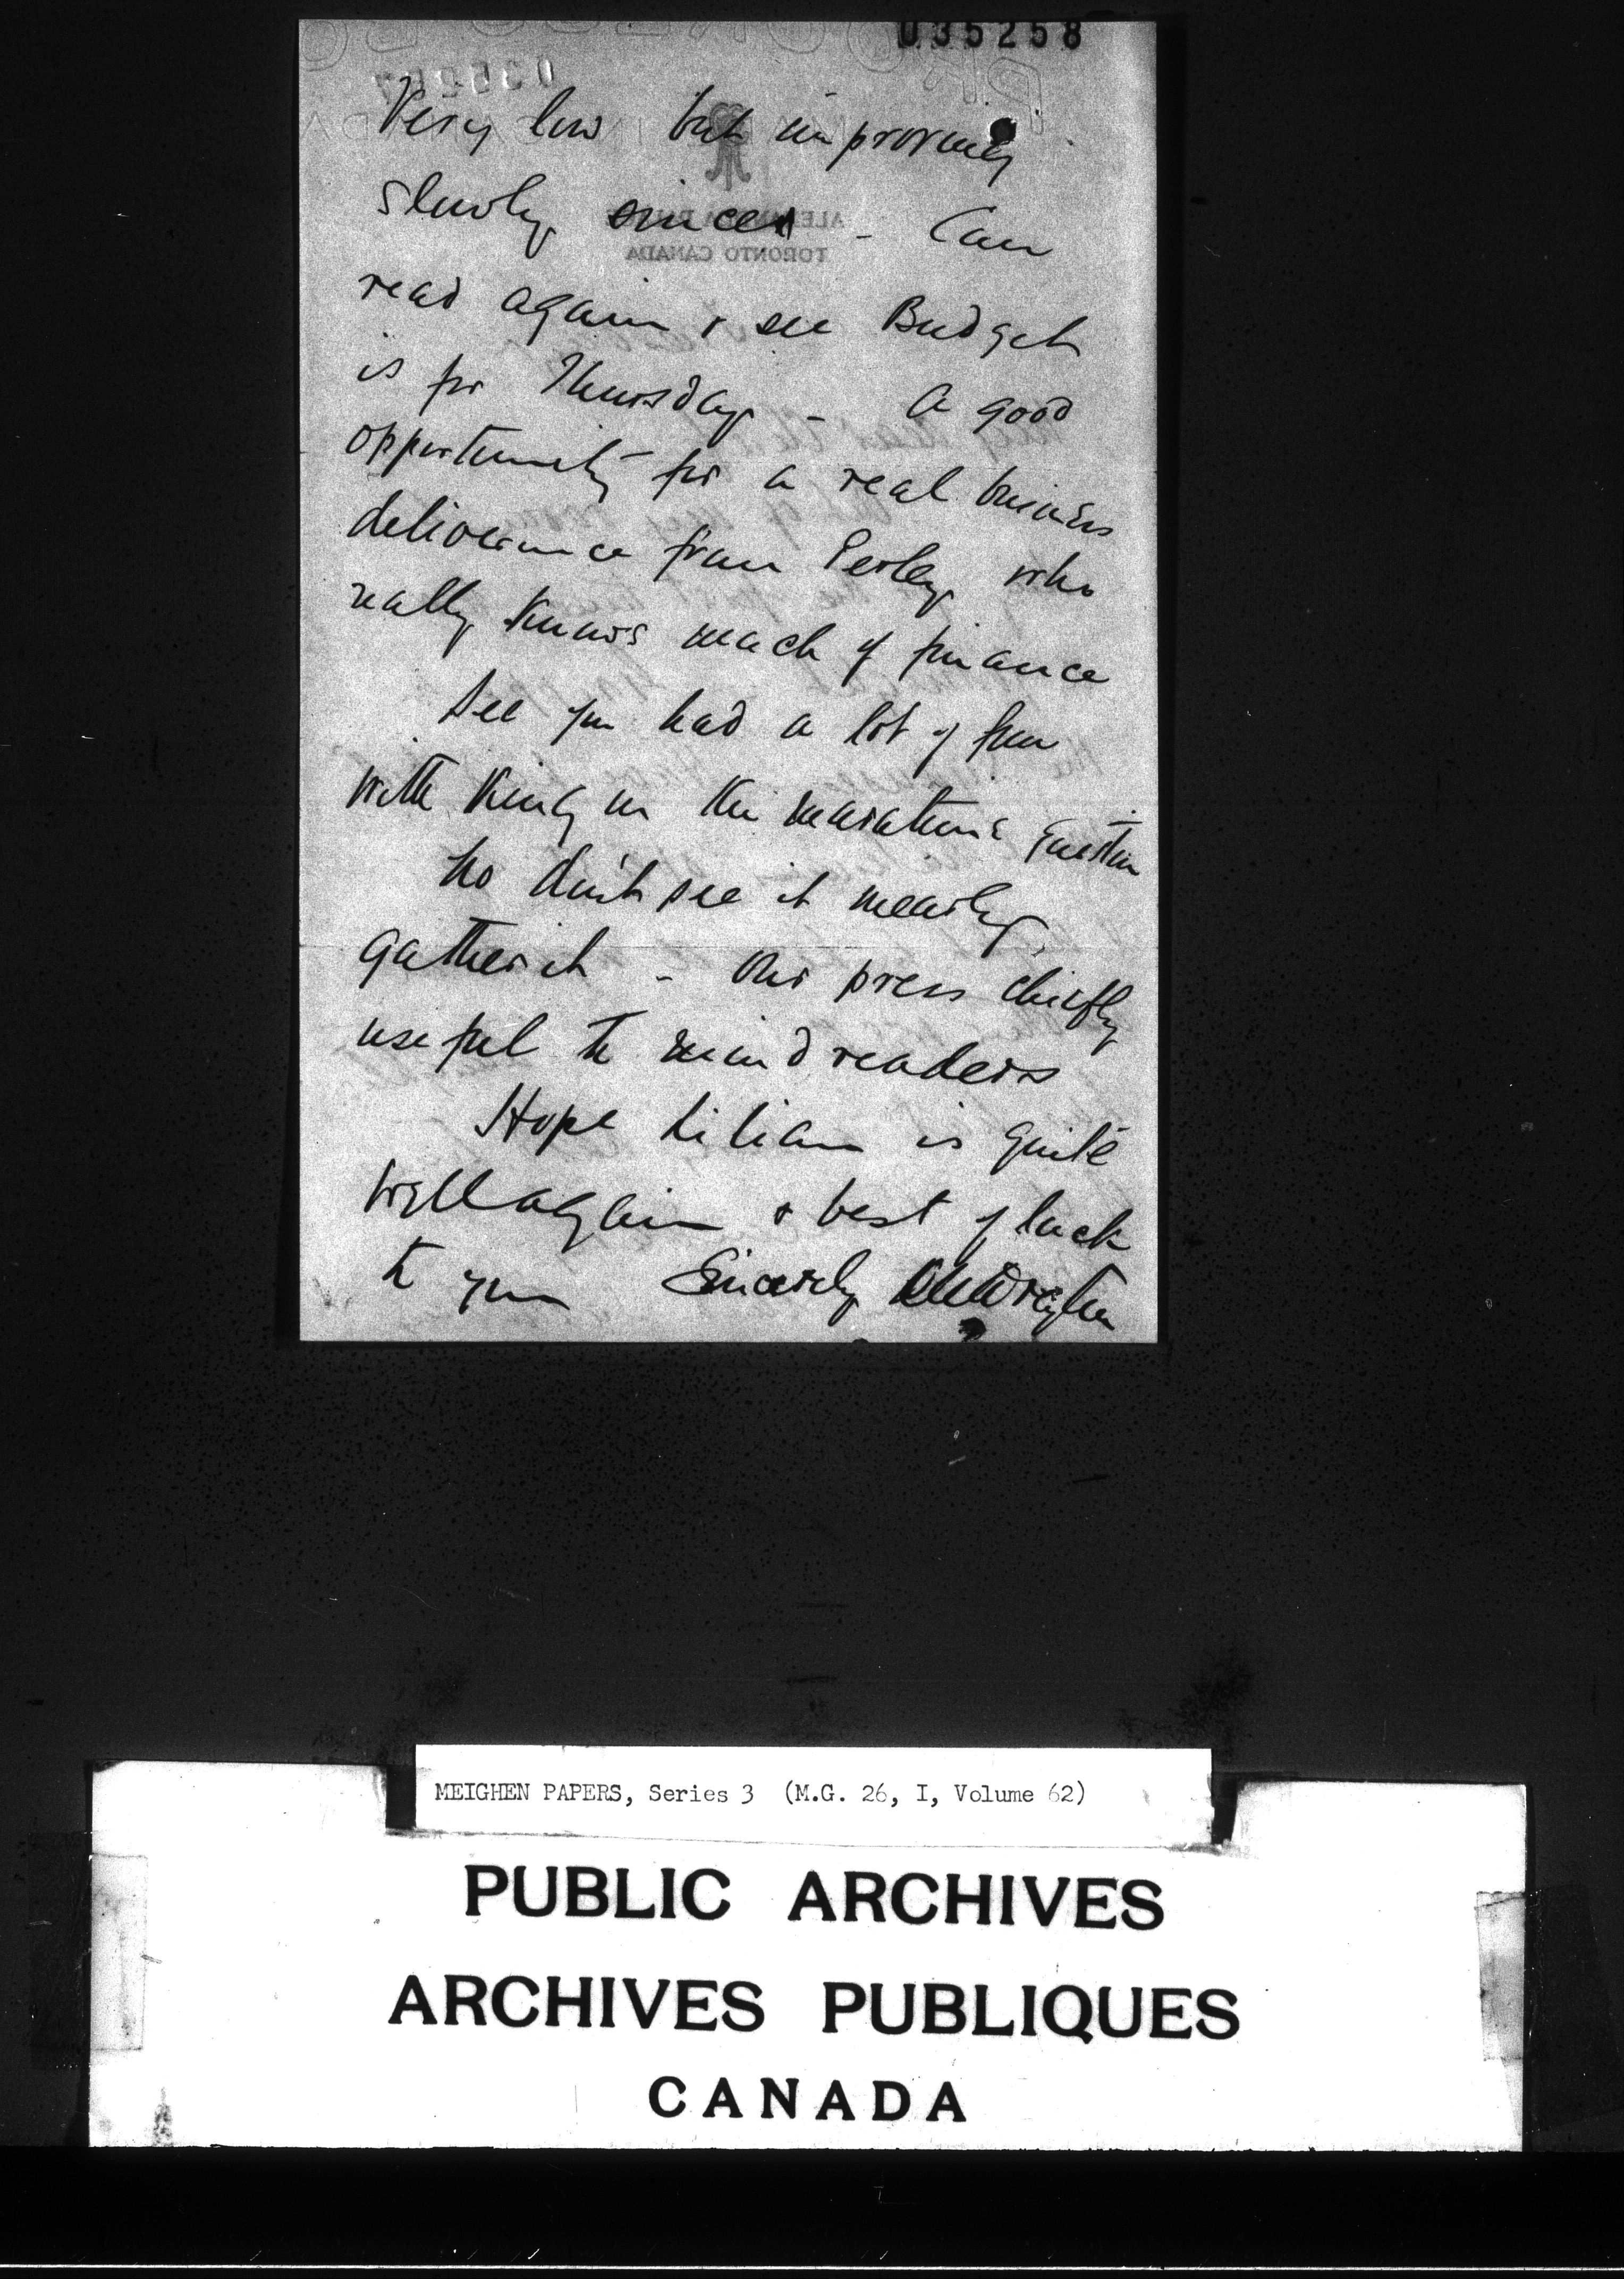 035258
Very low but improving
slowly since - Can
read again & see Budget
is for Thursday - A good
opportunity for a real business
deliverance from Perley who
really knows much of finance
See you had a lot of fun
with King on the question
didn't see it nearly
gather it - Our press chiefly
useful to mind readers
Hope Lilian is quite
well again & best of luck
to you Sincerely
ALEXANDRA PALACE
TORONTO CANADA
MEIGHEN PAPERS, Series 3 (M.G. 26, I, Volume 62)
PUBLIC ARCHIVES
ARCHIVES PUBLIQUES
CANADA